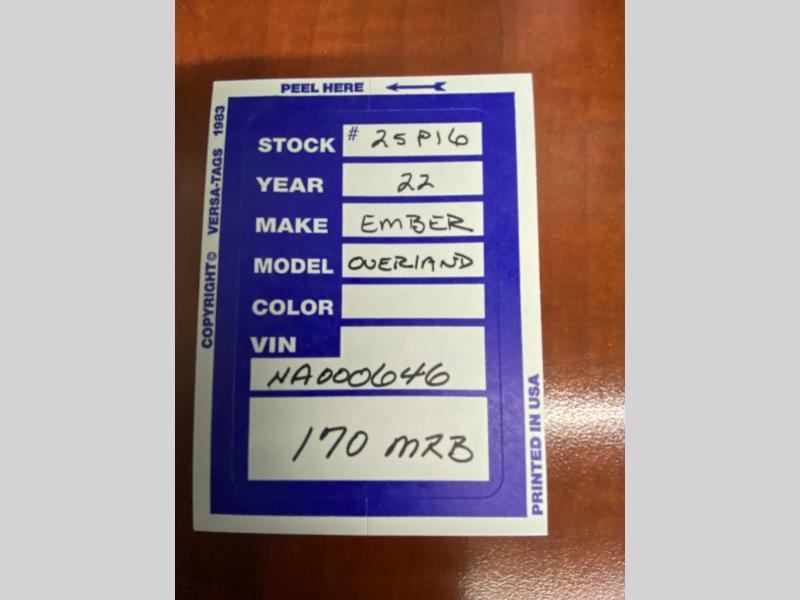 PEEL HERE
COPYRIGHT © VERSA-TAGS 1983
STOCK # 25P16
YEAR 22
MAKE EMBER
MODEL OVERLAND
COLOR
VIN
NA000646
170 MRB
PRINTED IN USA